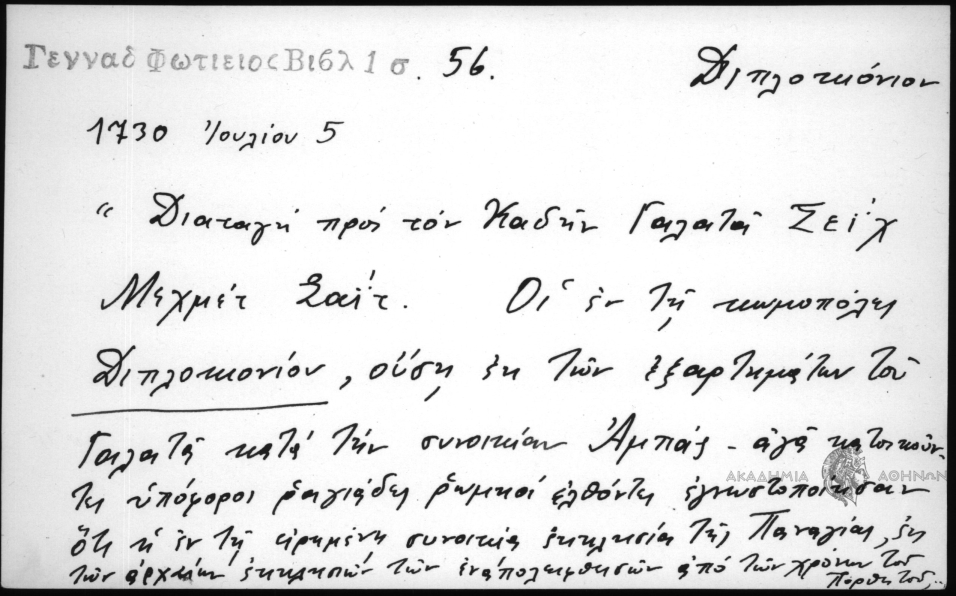 Γενναδ Φωτιειος Βιβλ 1 σ. 56. Διπλοκιόνιον
1730 Ἰουλίου 5
“ Διαταγὴ πρὸς τὸν Καδῆν Γαλατᾶ Σεΐχ
Μεχμὲτ Σαΐτ. Οἱ ἐν τῇ κωμοπόλει
Διπλοκιονίου, οὔσῃ ἐκ τῶν ἐξαρτημάτων τοῦ
Γαλατᾶ κατὰ τὴν συνοικίαν Ἀμπάς - ἀγᾶ κατοικοῦν-
τες ὑπόφοροι ῥαγιάδες ῥωμιοί ἐλθόντες ἐγνωστοποίησαν
ΑΚΑΔΗΜΙΑ ΑΘΗΝΩΝ
ὅτι ἡ ἐν τῇ εἰρημένῃ συνοικίᾳ ἐκκλησία τῆς Παναγίας, ἐκ
τῶν ἀρχαίων ἐκκλησιῶν τῶν ἐναπολειφθησῶν ἀπό τῶν χρόνων τοῦ
Πορθητοῦ,..